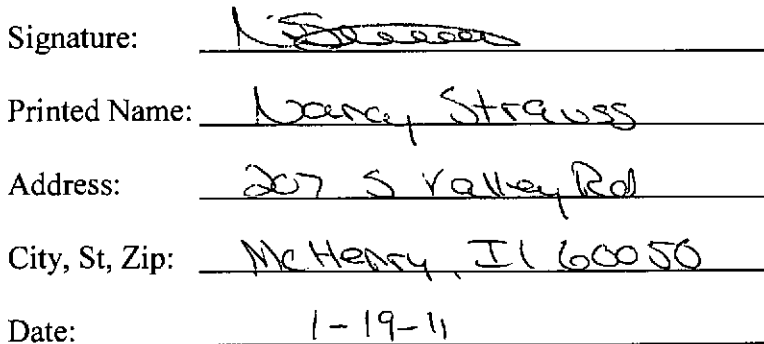 Signature:
Printed Name: Nancy Strauss
Address: 207 S Valley Rd
City, St, Zip: McHenry, Il 60050
Date: 1-19-11